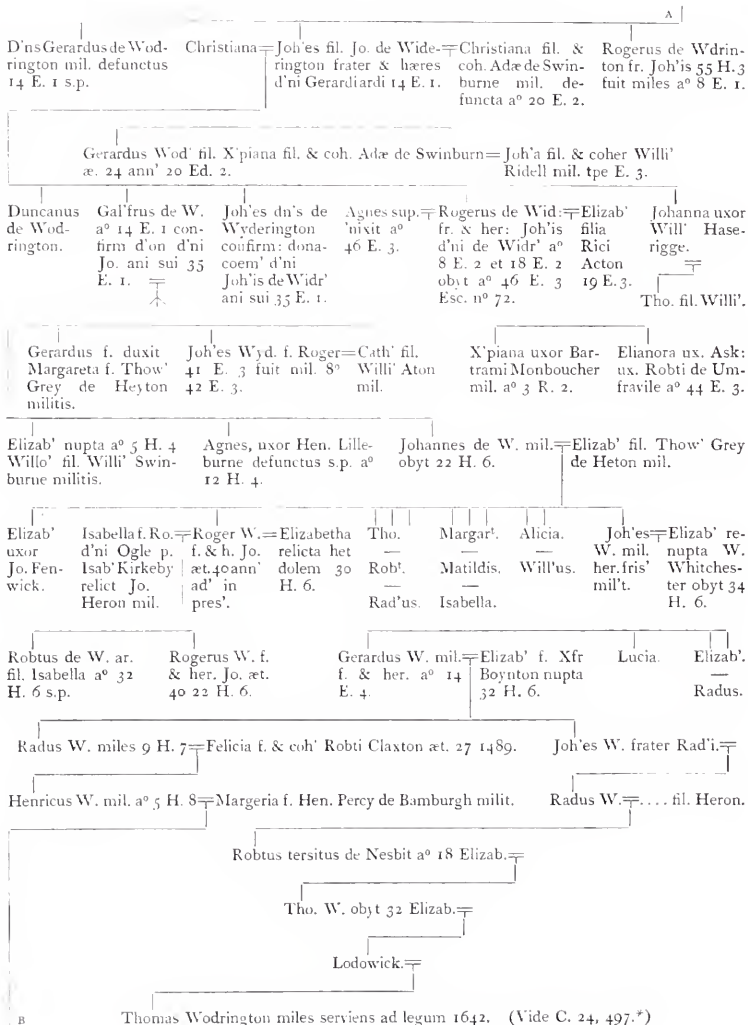 A
D'ns Gerardus de Wod-
rington mil. defunctus
14 E. 1 s.p.
Christiana
Joh'es fil. Jo. de Wide-
rington frater & hæres
d'ni Gerardiardi 14 E. 1.
Christiana fil. &
coh. Adæ de Swin-
burne mil. de-
functa aº 20 E. 2.
Rogerus de Wdrin-
ton fr. Joh'is 55 H. 3
fuit miles aº 8 E. 1.
Gerardus Wod' fil. X'piana fil. & coh. Adæ de Swinburn = Joh'a fil. & coher Willi'
æ. 24 ann' 20 Ed. 2.
Ridell mil. tpe E. 3.
Duncanus
de Wod-
rington.
Gal'frus de W.
aº 14 E. 1 con-
firm d'on d'ni
Jo. ani sui 35
E. 1.
Joh'es dn's de
Wyderington
confirm: dona-
coem' d'ni
Joh'is de Widr'
ani sui 35 E. 1.
Agnes sup.
'nixit aº
46 E. 3.
Rogerus de Wid:
fr. & her: Joh'is
d'ni de Widr' aº
8 E. 2 et 18 E. 2
obyt aº 46 E. 3
Esc. nº 72.
Elizab'
filia
Rici
Acton
19 E. 3.
Johanna uxor
Will' Hase-
rigge.
Tho. fil. Willi'.
Gerardus f. duxit
Margareta f. Thow'
Grey de Heyton
militis.
Joh'es Wyd. f. Roger
41 E. 3 fuit mil. 8º
42 E. 3.
= Cath' fil.
Willi' Aton
mil.
X'piana uxor Bar-
trami Monboucher
mil. aº 3 R. 2.
Elianora ux. Ask:
ux. Robti de Um-
fravile aº 44 E. 3.
Elizab' nupta aº 5 H. 4
Willo' fil. Willi' Swin-
burne militis.
Agnes, uxor Hen. Lille-
burne defunctus s.p. aº
12 H. 4.
Johannes de W. mil.
obyt 22 H. 6.
Elizab' fil. Thow' Grey
de Heton mil.
Elizab'
uxor
Jo. Fen-
wick.
Isabella f. Ro.
d'ni Ogle p.
Isab' Kirkeby
relict Jo.
Heron mil.
Roger W.
f. & h. Jo.
æt. 40 ann'
ad' in
pres'.
= Elizabetha
relicta het
dolem 30
H. 6.
Tho.
—
Robᵗ.
—
Rad'us.
Margarᵗ.
—
Matildis.
—
Isabella.
Alicia.
—
Will'us.
Joh'es
W. mil.
her. fris'
mil't.
Elizab' re-
nupta W.
Whitches-
ter obyt 34
H. 6.
Robtus de W. ar.
fil. Isabella aº 32
H. 6 s.p.
Rogerus W. f.
& her. Jo. æt.
40 22 H. 6.
Gerardus W. mil.
f. & her. aº 14
E. 4.
Elizab' f. Xfr
Boynton nupta
32 H. 6.
Lucia.
Elizab'.
—
Radus.
Radus W. miles 9 H. 7
Felicia f. & coh' Robti Claxton æt. 27 1489.
Joh'es W. frater Rad'i.
Henricus W. mil. aº 5 H. 8
Margeria f. Hen. Percy de Bamburgh milit.
Radus W.
. . . . fil. Heron.
Robtus tersitus de Nesbit aº 18 Elizab.
Tho. W. obyt 32 Elizab.
Lodowick.
B
Thomas Wodrington miles serviens ad legum 1642. (Vide C. 24, 497.*)